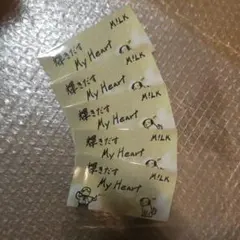 M!LK
輝きだす
My Heart
M!LK
輝きだす
My Heart
M!LK
輝きだす
My Heart
M!LK
輝きだす
My Heart
M!LK
輝きだす
My Heart